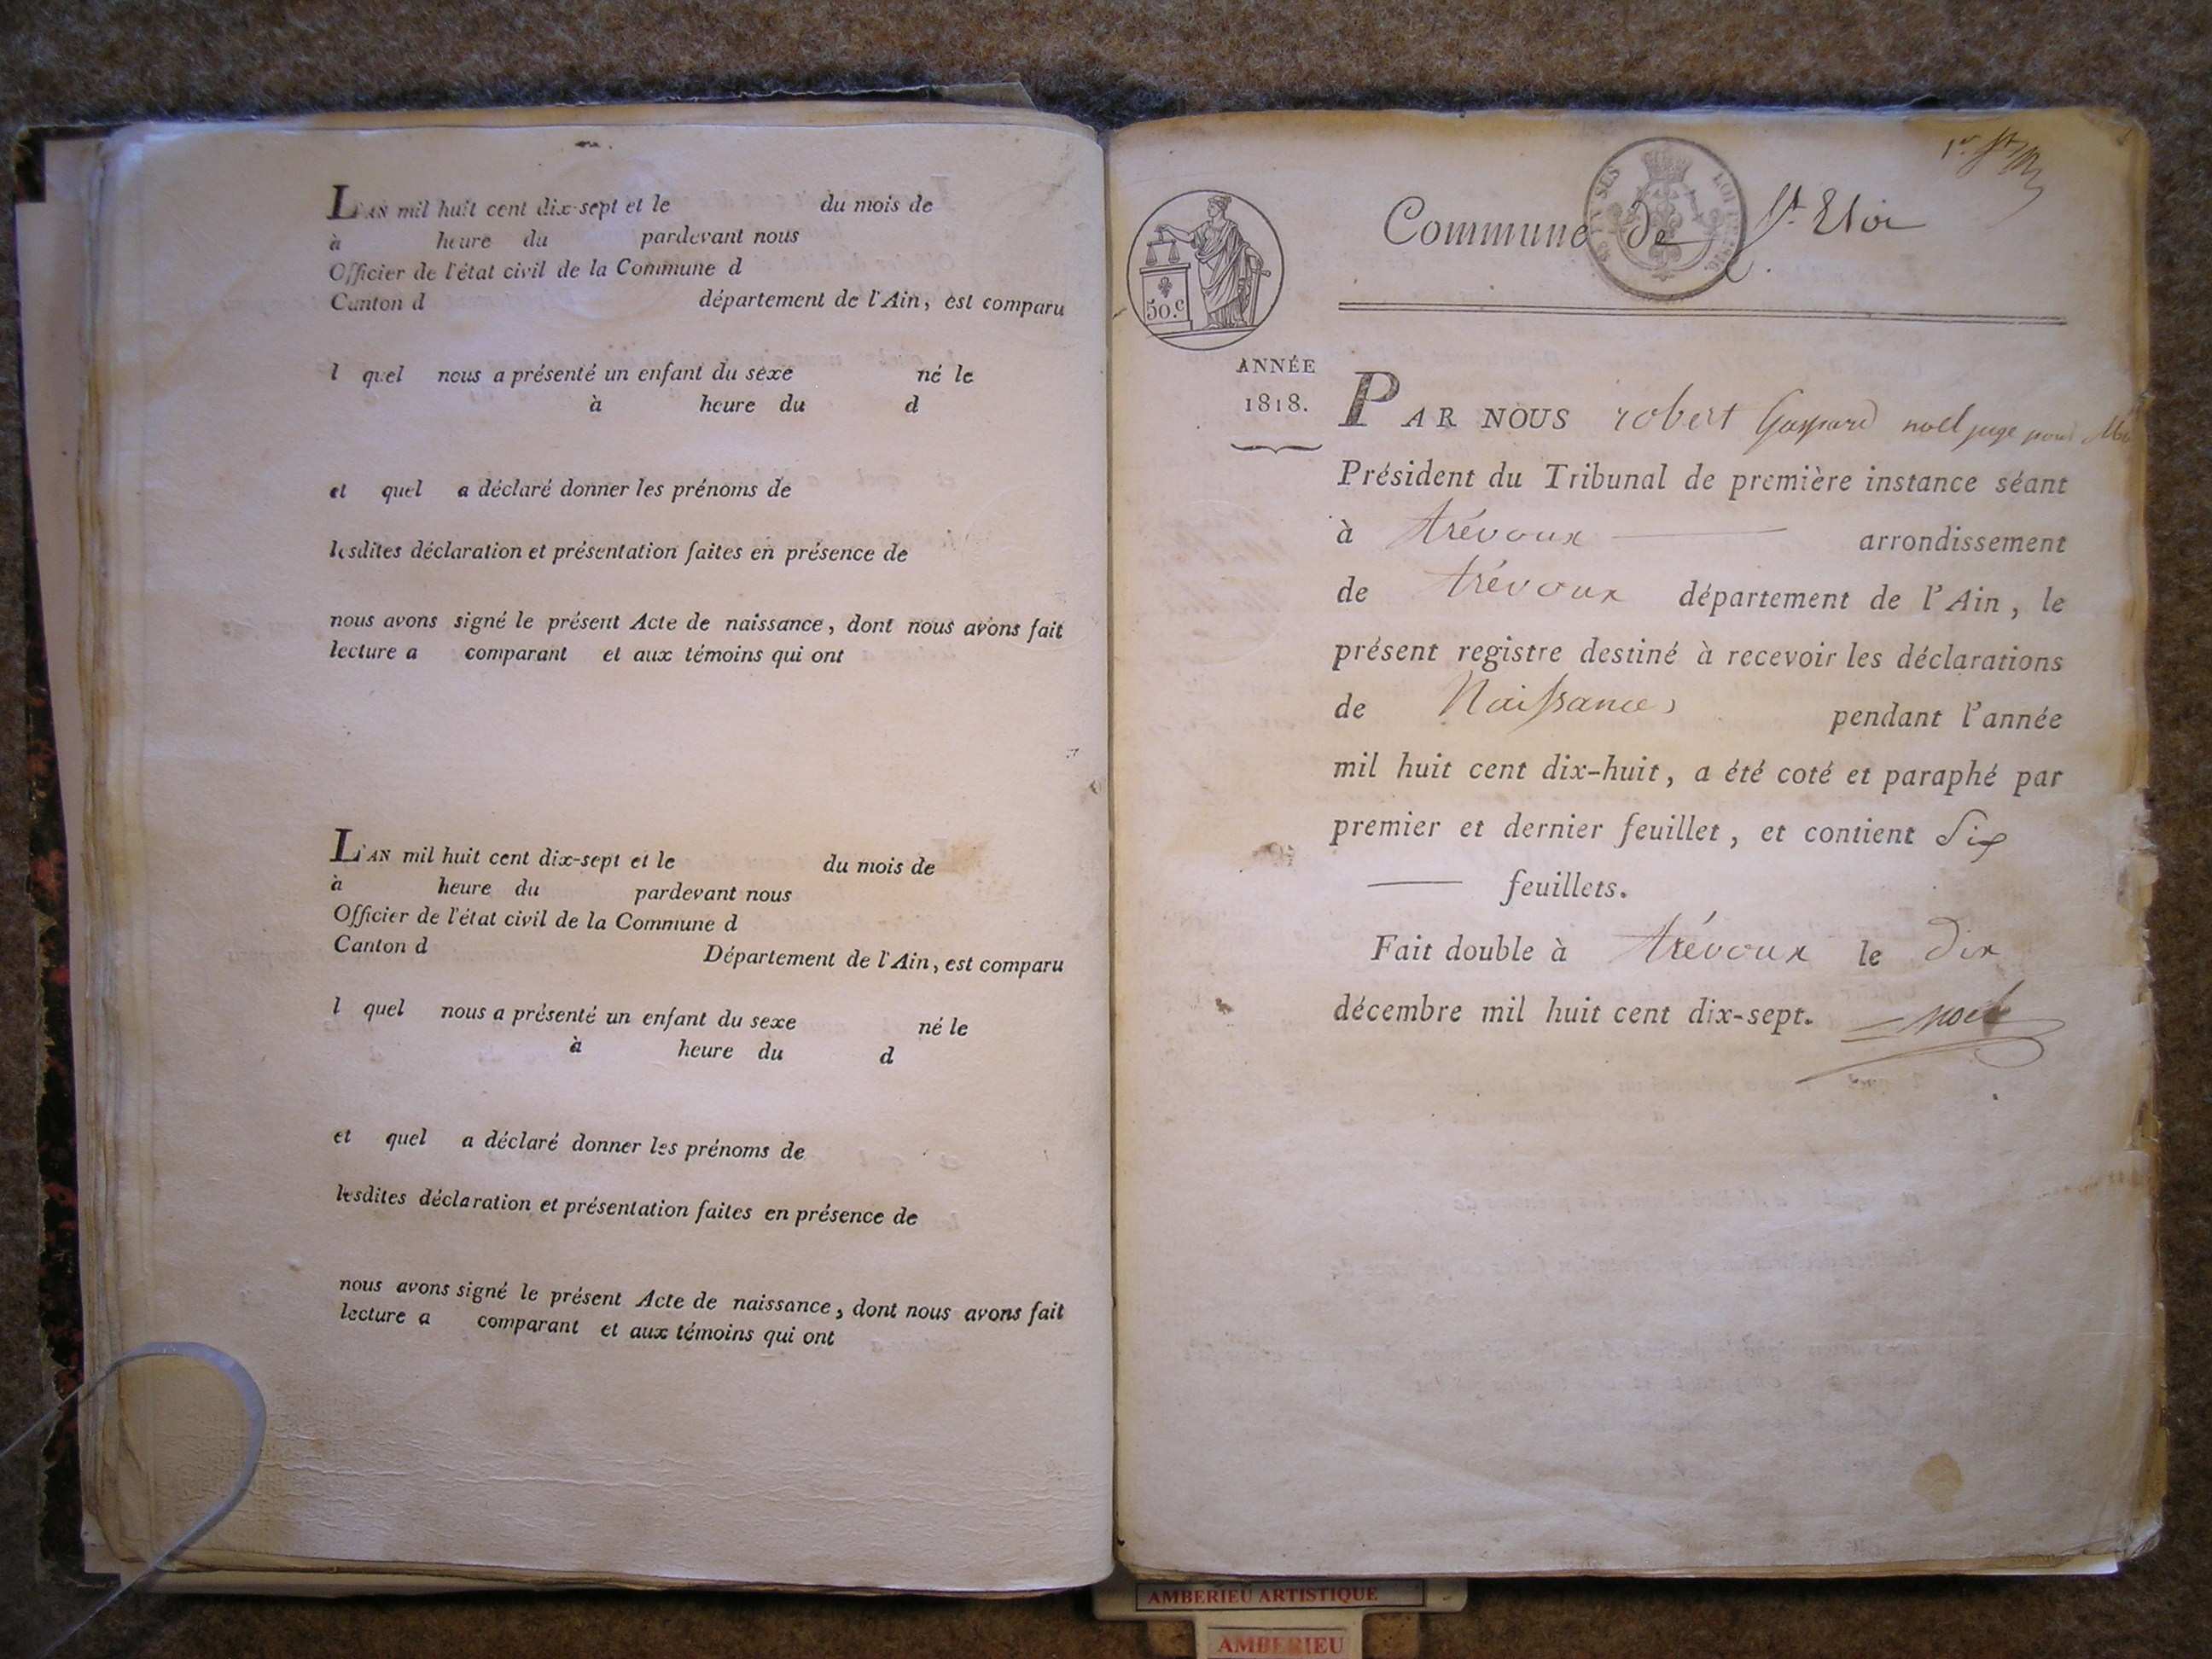 L'AN mil huit cent dix-sept et le du mois de
à heure du pardevant nous
Officier de l'état civil de la Commune d
Canton d département de l'Ain, est comparu
l quel nous a présenté un enfant du sexe né le
à heure du d
et quel a déclaré donner les prénoms de
lesdites déclaration et présentation faites en présence de
nous avons signé le présent Acte de naissance, dont nous avons fait
lecture a comparant et aux témoins qui ont
L'AN mil huit cent dix-sept et le du mois de
à heure du pardevant nous
Officier de l'état civil de la Commune d
Canton d Département de l'Ain, est comparu
l quel nous a présenté un enfant du sexe né le
à heure du d
et quel a déclaré donner les prénoms de
lesdites déclaration et présentation faites en présence de
nous avons signé le présent Acte de naissance, dont nous avons fait
lecture a comparant et aux témoins qui ont
Commune de St Eloi
50.c
ANNÉE
1818.
PAR NOUS robert Gaspard noel juge pour
Président du Tribunal de première instance séant
à trévoux arrondissement
de trévoux département de l'Ain, le
présent registre destiné à recevoir les déclarations
de Naissances pendant l'année
mil huit cent dix-huit, a été coté et paraphé par
premier et dernier feuillet, et contient Six
feuillets.
Fait double à trévoux le dix
décembre mil huit cent dix-sept. noel
AMBERIEU ARTISTIQUE
AMBERIEU